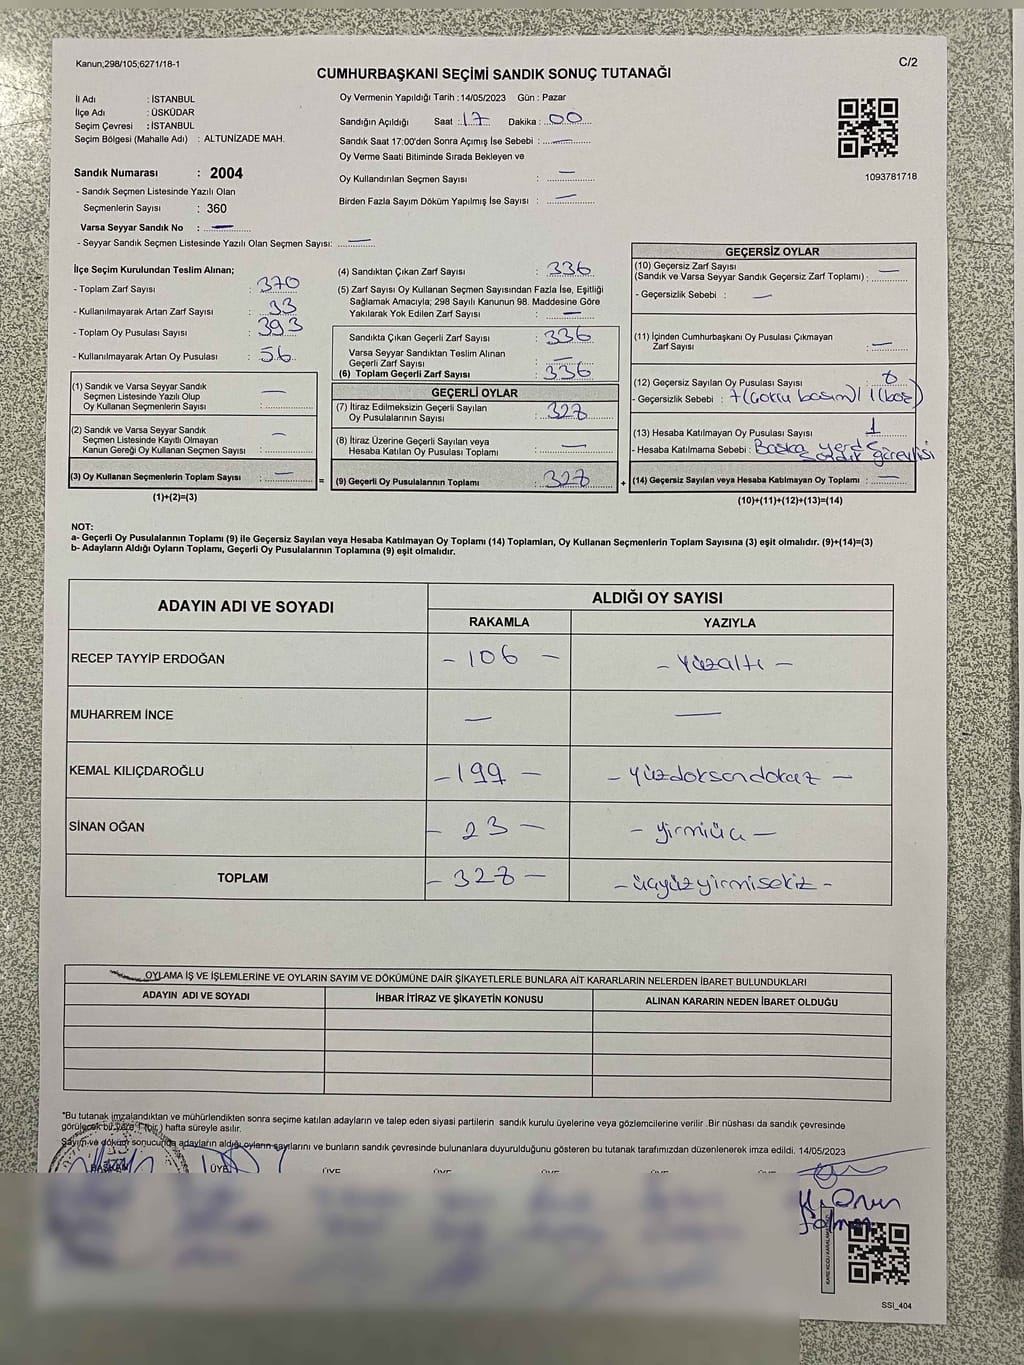 Kanun;298/105;6271/18-1
C/2
CUMHURBAŞKANI SEÇİMİ SANDIK SONUÇ TUTANAĞI
İl Adı : İSTANBUL
İlçe Adı : ÜSKÜDAR
Seçim Çevresi : İSTANBUL
Seçim Bölgesi (Mahalle Adı) : ALTUNİZADE MAH.
Sandık Numarası : 2004
- Sandık Seçmen Listesinde Yazılı Olan
Seçmenlerin Sayısı : 360
Varsa Seyyar Sandık No : —
- Seyyar Sandık Seçmen Listesinde Yazılı Olan Seçmen Sayısı: —
Oy Vermenin Yapıldığı Tarih :14/05/2023 Gün : Pazar
Sandığın Açıldığı Saat : 17 Dakika : 00
Sandık Saat 17:00'den Sonra Açımış İse Sebebi : —
Oy Verme Saati Bitiminde Sırada Bekleyen ve
Oy Kullandırılan Seçmen Sayısı : —
Birden Fazla Sayım Döküm Yapılmış İse Sayısı : —
1093781718
İlçe Seçim Kurulundan Teslim Alınan;
- Toplam Zarf Sayısı : 370
- Kullanılmayarak Artan Zarf Sayısı : 33
- Toplam Oy Pusulası Sayısı : 393
- Kullanılmayarak Artan Oy Pusulası : 56
(1) Sandık ve Varsa Seyyar Sandık
Seçmen Listesinde Yazılı Olup
Oy Kullanan Seçmenlerin Sayısı : —
(2) Sandık ve Varsa Seyyar Sandık
Seçmen Listesinde Kayıtlı Olmayan
Kanun Gereği Oy Kullanan Seçmen Sayısı : —
(3) Oy Kullanan Seçmenlerin Toplam Sayısı : —
(1)+(2)=(3)
=
(4) Sandıktan Çıkan Zarf Sayısı : 336
(5) Zarf Sayısı Oy Kullanan Seçmen Sayısından Fazla İse, Eşitliği
Sağlamak Amacıyla; 298 Sayılı Kanunun 98. Maddesine Göre
Yakılarak Yok Edilen Zarf Sayısı : —
Sandıkta Çıkan Geçerli Zarf Sayısı : 336
Varsa Seyyar Sandıktan Teslim Alınan
Geçerli Zarf Sayısı : —
(6) Toplam Geçerli Zarf Sayısı : 336
GEÇERLİ OYLAR
(7) İtiraz Edilmeksizin Geçerli Sayılan
Oy Pusulalarının Sayısı : 328
(8) İtiraz Üzerine Geçerli Sayılan veya
Hesaba Katılan Oy Pusulası Toplamı : —
(9) Geçerli Oy Pusulalarının Toplamı : 328
+
GEÇERSİZ OYLAR
(10) Geçersiz Zarf Sayısı
(Sandık ve Varsa Seyyar Sandık Geçersiz Zarf Toplamı) : —
- Geçersizlik Sebebi : —
(11) İçinden Cumhurbaşkanı Oy Pusulası Çıkmayan
Zarf Sayısı : —
(12) Geçersiz Sayılan Oy Pusulası Sayısı : 8
- Geçersizlik Sebebi : 7(çoklu basım) 1(boş)
(13) Hesaba Katılmayan Oy Pusulası Sayısı : 1
- Hesaba Katılmama Sebebi : Başka yerde
sandık görevlisi
(14) Geçersiz Sayılan veya Hesaba Katılmayan Oy Toplamı : —
(10)+(11)+(12)+(13)=(14)
NOT:
a- Geçerli Oy Pusulalarının Toplamı (9) ile Geçersiz Sayılan veya Hesaba Katılmayan Oy Toplamı (14) Toplamları, Oy Kullanan Seçmenlerin Toplam Sayısına (3) eşit olmalıdır. (9)+(14)=(3)
b- Adayların Aldığı Oyların Toplamı, Geçerli Oy Pusulalarının Toplamına (9) eşit olmalıdır.
ADAYIN ADI VE SOYADI ALDIĞI OY SAYISI
RAKAMLA YAZIYLA
RECEP TAYYİP ERDOĞAN - 106 - - Yüzaltı -
MUHARREM İNCE — —
KEMAL KILIÇDAROĞLU - 199 - - Yüzdoksandokuz -
SİNAN OĞAN - 23 - - yirmiüç -
TOPLAM - 328 - - üçyüzyirmisekiz -
OYLAMA İŞ VE İŞLEMLERİNE VE OYLARIN SAYIM VE DÖKÜMÜNE DAİR ŞİKAYETLERLE BUNLARA AİT KARARLARIN NELERDEN İBARET BULUNDUKLARI
ADAYIN ADI VE SOYADI İHBAR İTİRAZ VE ŞİKAYETİN KONUSU ALINAN KARARIN NEDEN İBARET OLDUĞU
*Bu tutanak imzalandıktan ve mühürlendikten sonra seçime katılan adayların ve talep eden siyasi partilerin sandık kurulu üyelerine veya gözlemcilerine verilir .Bir nüshası da sandık çevresinde
görülecek bir yere 1 (bir ) hafta süreyle asılır.
Sayım ve döküm sonucunda adayların aldığı oyların sayılarını ve bunların sandık çevresinde bulunanlara duyurulduğunu gösteren bu tutanak tarafımızdan düzenlenerek imza edildi. 14/05/2023
BAŞKAN ÜYE ÜYE ÜYE ÜYE ÜYE
SSI_404